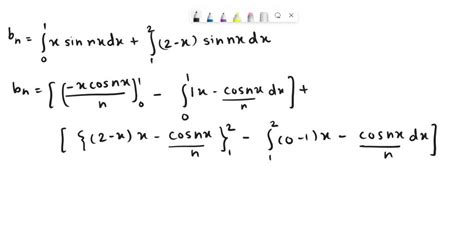 bₙ = ∫₀¹ x sin nx dx + ∫₁² (2-x) sin nx dx
bₙ = [ (-x cos nx / n)₀¹ - ∫₀¹ 1x - cos nx / n dx ] +
[ { (2-x) x - cos nx / n }₁² - ∫₁² (0-1) x - cos nx / n dx ]